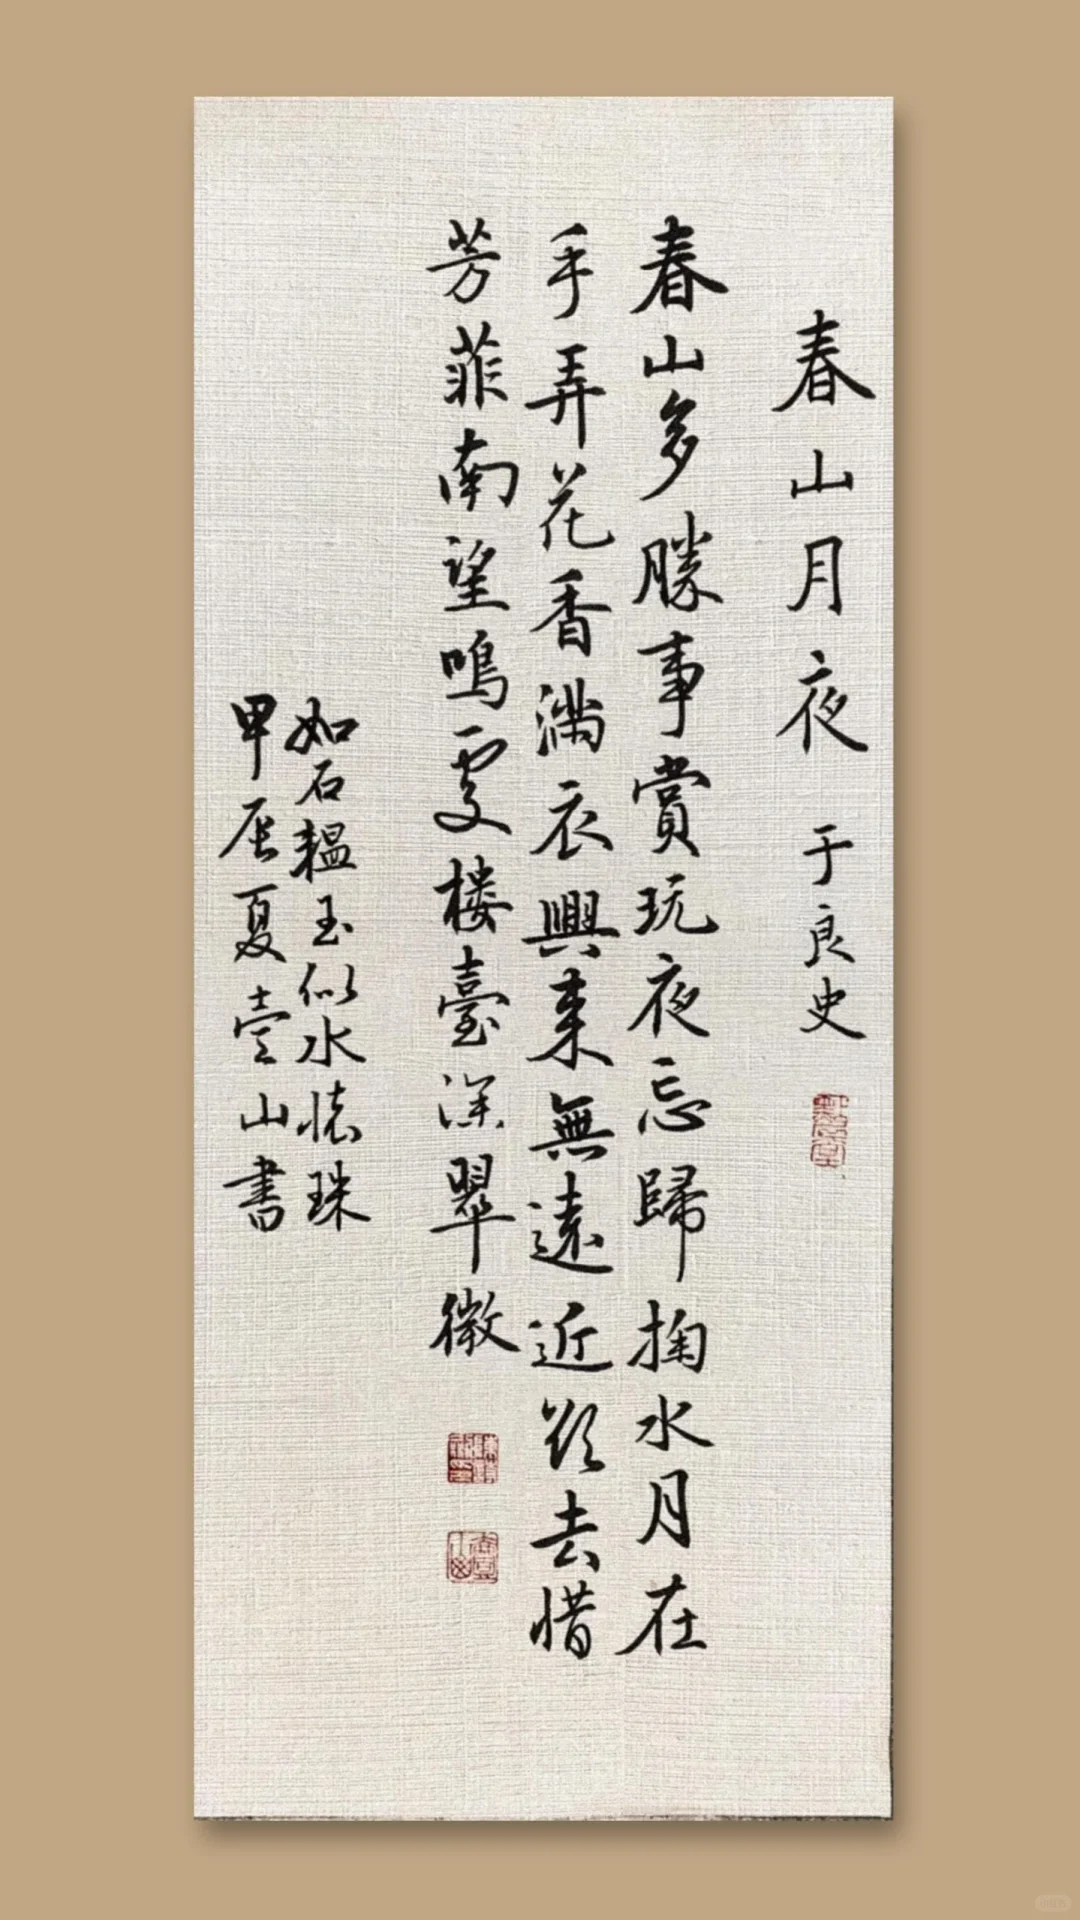 春山月夜 于良史
春山多勝事賞玩夜忘歸掬水月在
手弄花香滿衣興來無遠近欲去惜
芳菲南望鳴處楼臺深翠微
如石韞玉似水懷珠
甲辰夏壹山書